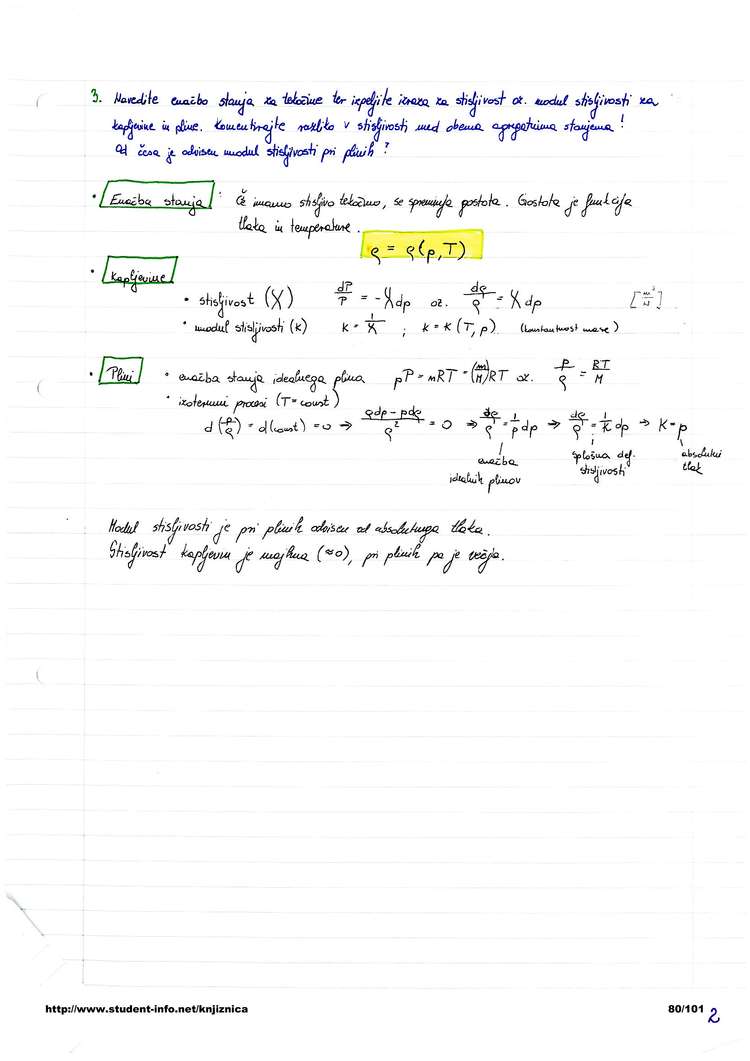 3. Navedite enačbo stanja za tekočine ter izpeljite izraza za stisljivost oz. modul stisljivosti za
kapljevine in pline. Komentirajte razliko v stisljivosti med obema agregatnima stanjema!
Od česa je odvisen modul stisljivosti pri plinih?
• Enačba stanja : Če imamo stisljivo tekočino, se spreminja gostota. Gostota je funkcija
tlaka in temperature.
ρ = ρ(p,T)
• Kapljevine
• stisljivost (χ) dP/P = -χdp oz. dρ/ρ = χdp [m²/N]
• modul stisljivosti (K) K = 1/χ ; K = K(T,p) (konstantnost mase)
• Plini • enačba stanja idealnega plina pP = mRT = (m/M)RT oz. p/ρ = RT/M
• izotermni procesi (T=const)
d(p/ρ) = d(const) = 0 ⇒ (ρdp - pdρ)/ρ² = 0 ⇒ dρ/ρ = 1/p dp ⇒ dρ/ρ = 1/K dp → K = p
enačba idealnih plinov
splošna def. stisljivosti
absolutni tlak
Modul stisljivosti je pri plinih odvisen od absolutnega tlaka.
Stisljivost kapljevin je majhna (≈0), pri plinih pa je večja.
http://www.student-info.net/knjiznica 80/101 2